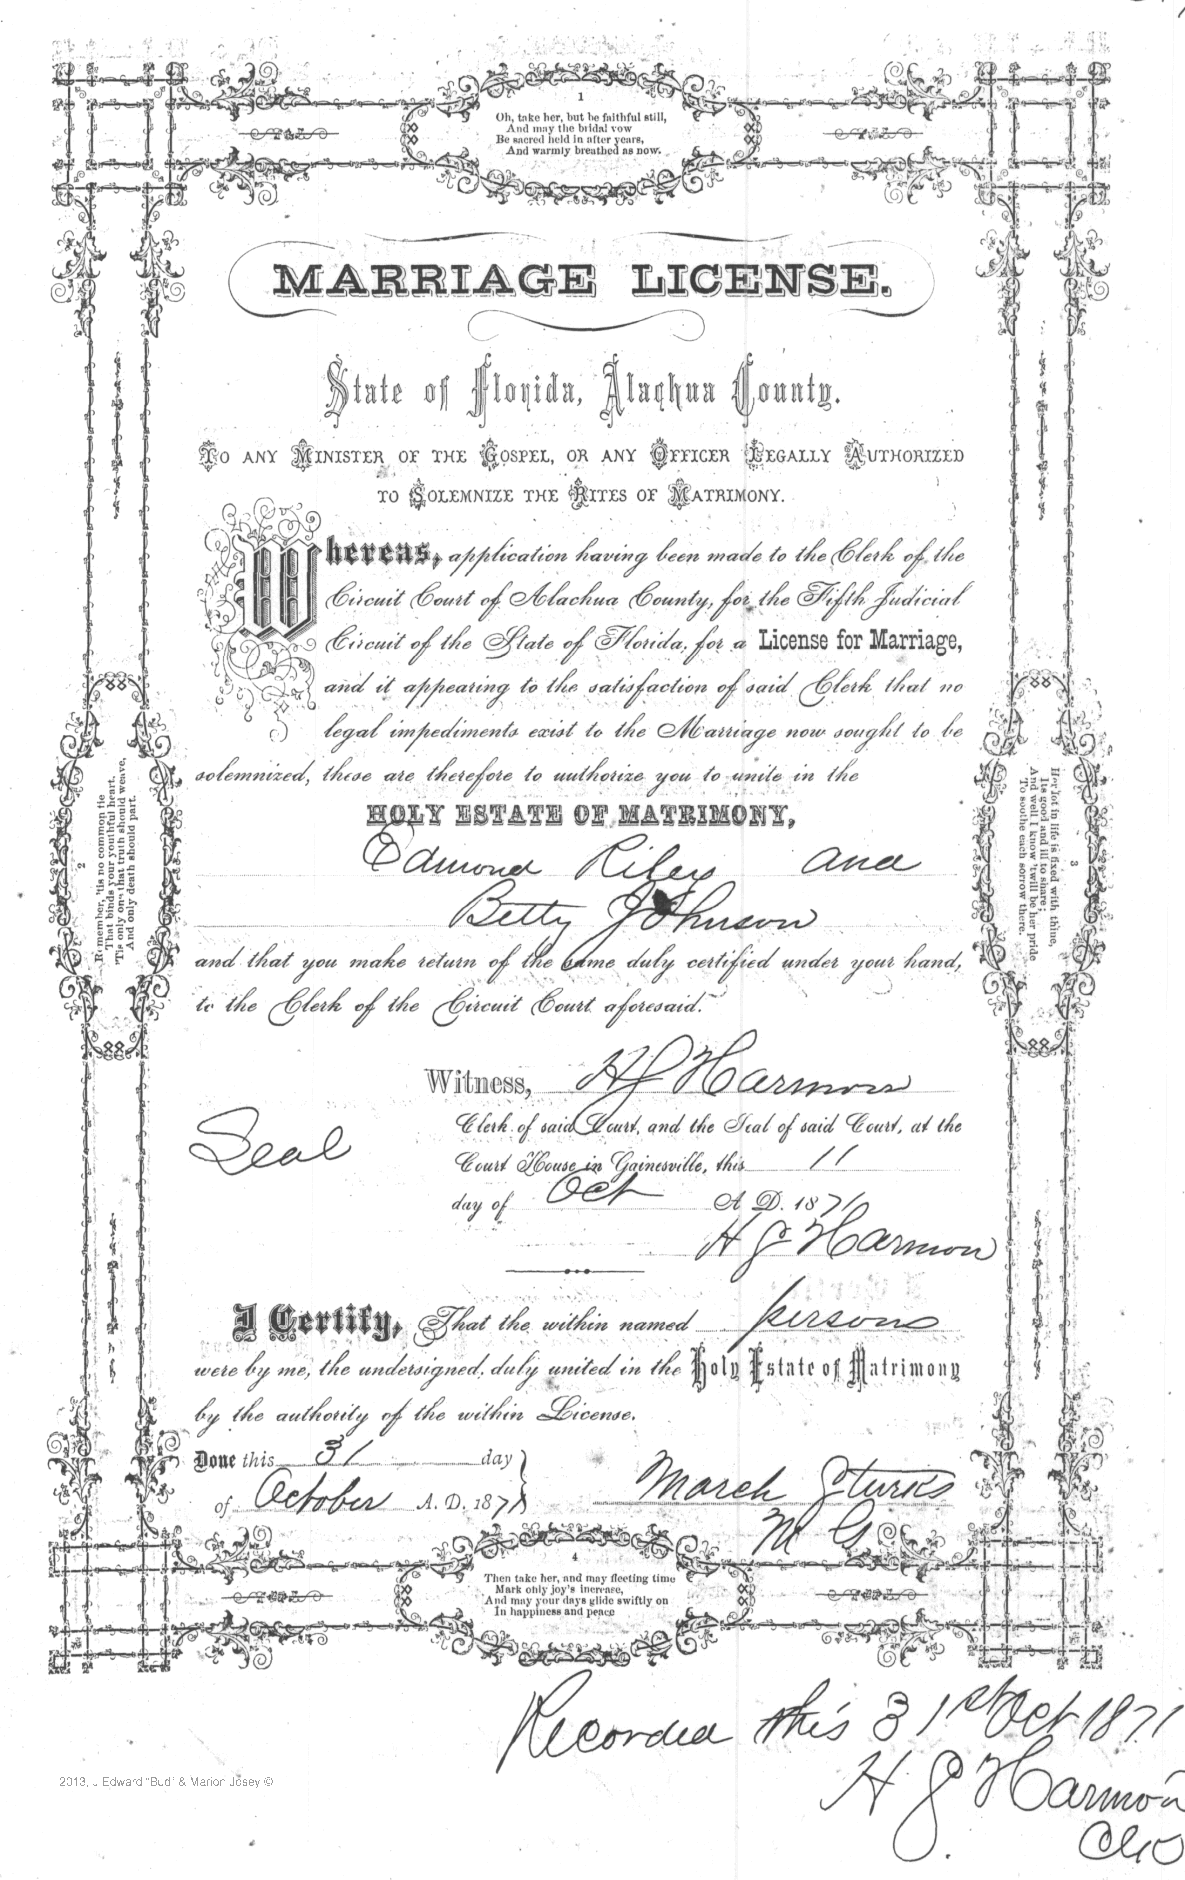 1
Oh, take her, but be faithful still,
And may the bridal vow
Be sacred held in after years,
And warmly breathed as now.
MARRIAGE LICENSE.
State of Florida, Alachua County.
TO ANY MINISTER OF THE GOSPEL, OR ANY OFFICER LEGALLY AUTHORIZED
TO SOLEMNIZE THE RITES OF MATRIMONY.
Whereas, application having been made to the Clerk of the
Circuit Court of Alachua County, for the Fifth Judicial
Circuit of the State of Florida, for a License for Marriage,
and it appearing to the satisfaction of said Clerk that no
legal impediments exist to the Marriage now sought to be
solemnized, these are therefore to authorize you to unite in the
HOLY ESTATE OF MATRIMONY,
Edmond Riley and
Betty Johnson
and that you make return of the same duly certified under your hand,
to the Clerk of the Circuit Court aforesaid.
2
Remember, 'tis no common tie
That binds your youthful heart,
'Tis only one that truth should weave,
And only death should part.
3
Her lot in life is fixed with thine,
Its good and ill to share;
And well I know 'twill be her pride
To soothe each sorrow there.
Witness, H J Harmon
Seal
Clerk of said Court, and the Seal of said Court, at the
Court House in Gainesville, this 11
day of Oct A. D. 1871
H J Harmon
I Certify, That the within named persons
were by me, the undersigned, duly united in the Holy Estate of Matrimony
by the authority of the within License.
Done this 31 day
of October A. D. 1871
March Sturks
M G
4
Then take her, and may fleeting time
Mark only joy's increase,
And may your days glide swiftly on
In happiness and peace
Recorded this 31st Oct 1871
H J Harmon
Clk
2013, J Edward "Bud" & Marion Josey ©